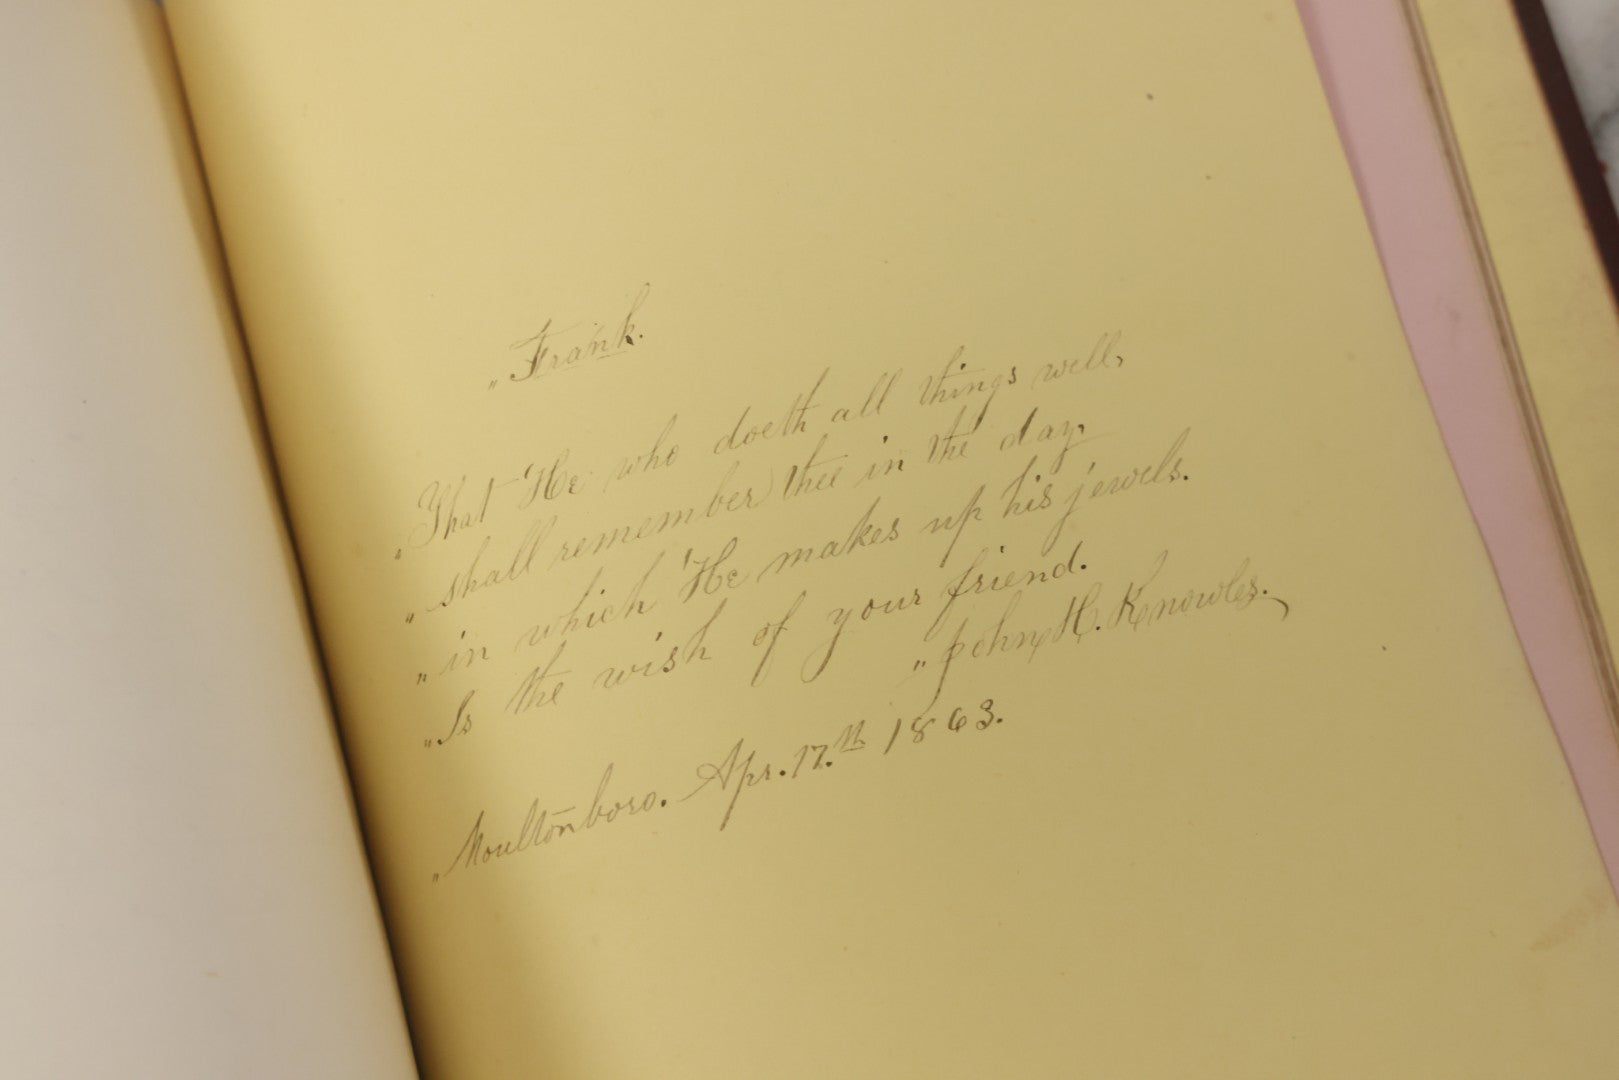 „Frank.
„That He who doeth all things well,
„shall remember thee in the day,
„in which He makes up his jewels.
„Is the wish of your friend.
„John H. Knowles.
„Moultonboro. Apr. 17.th 1863.